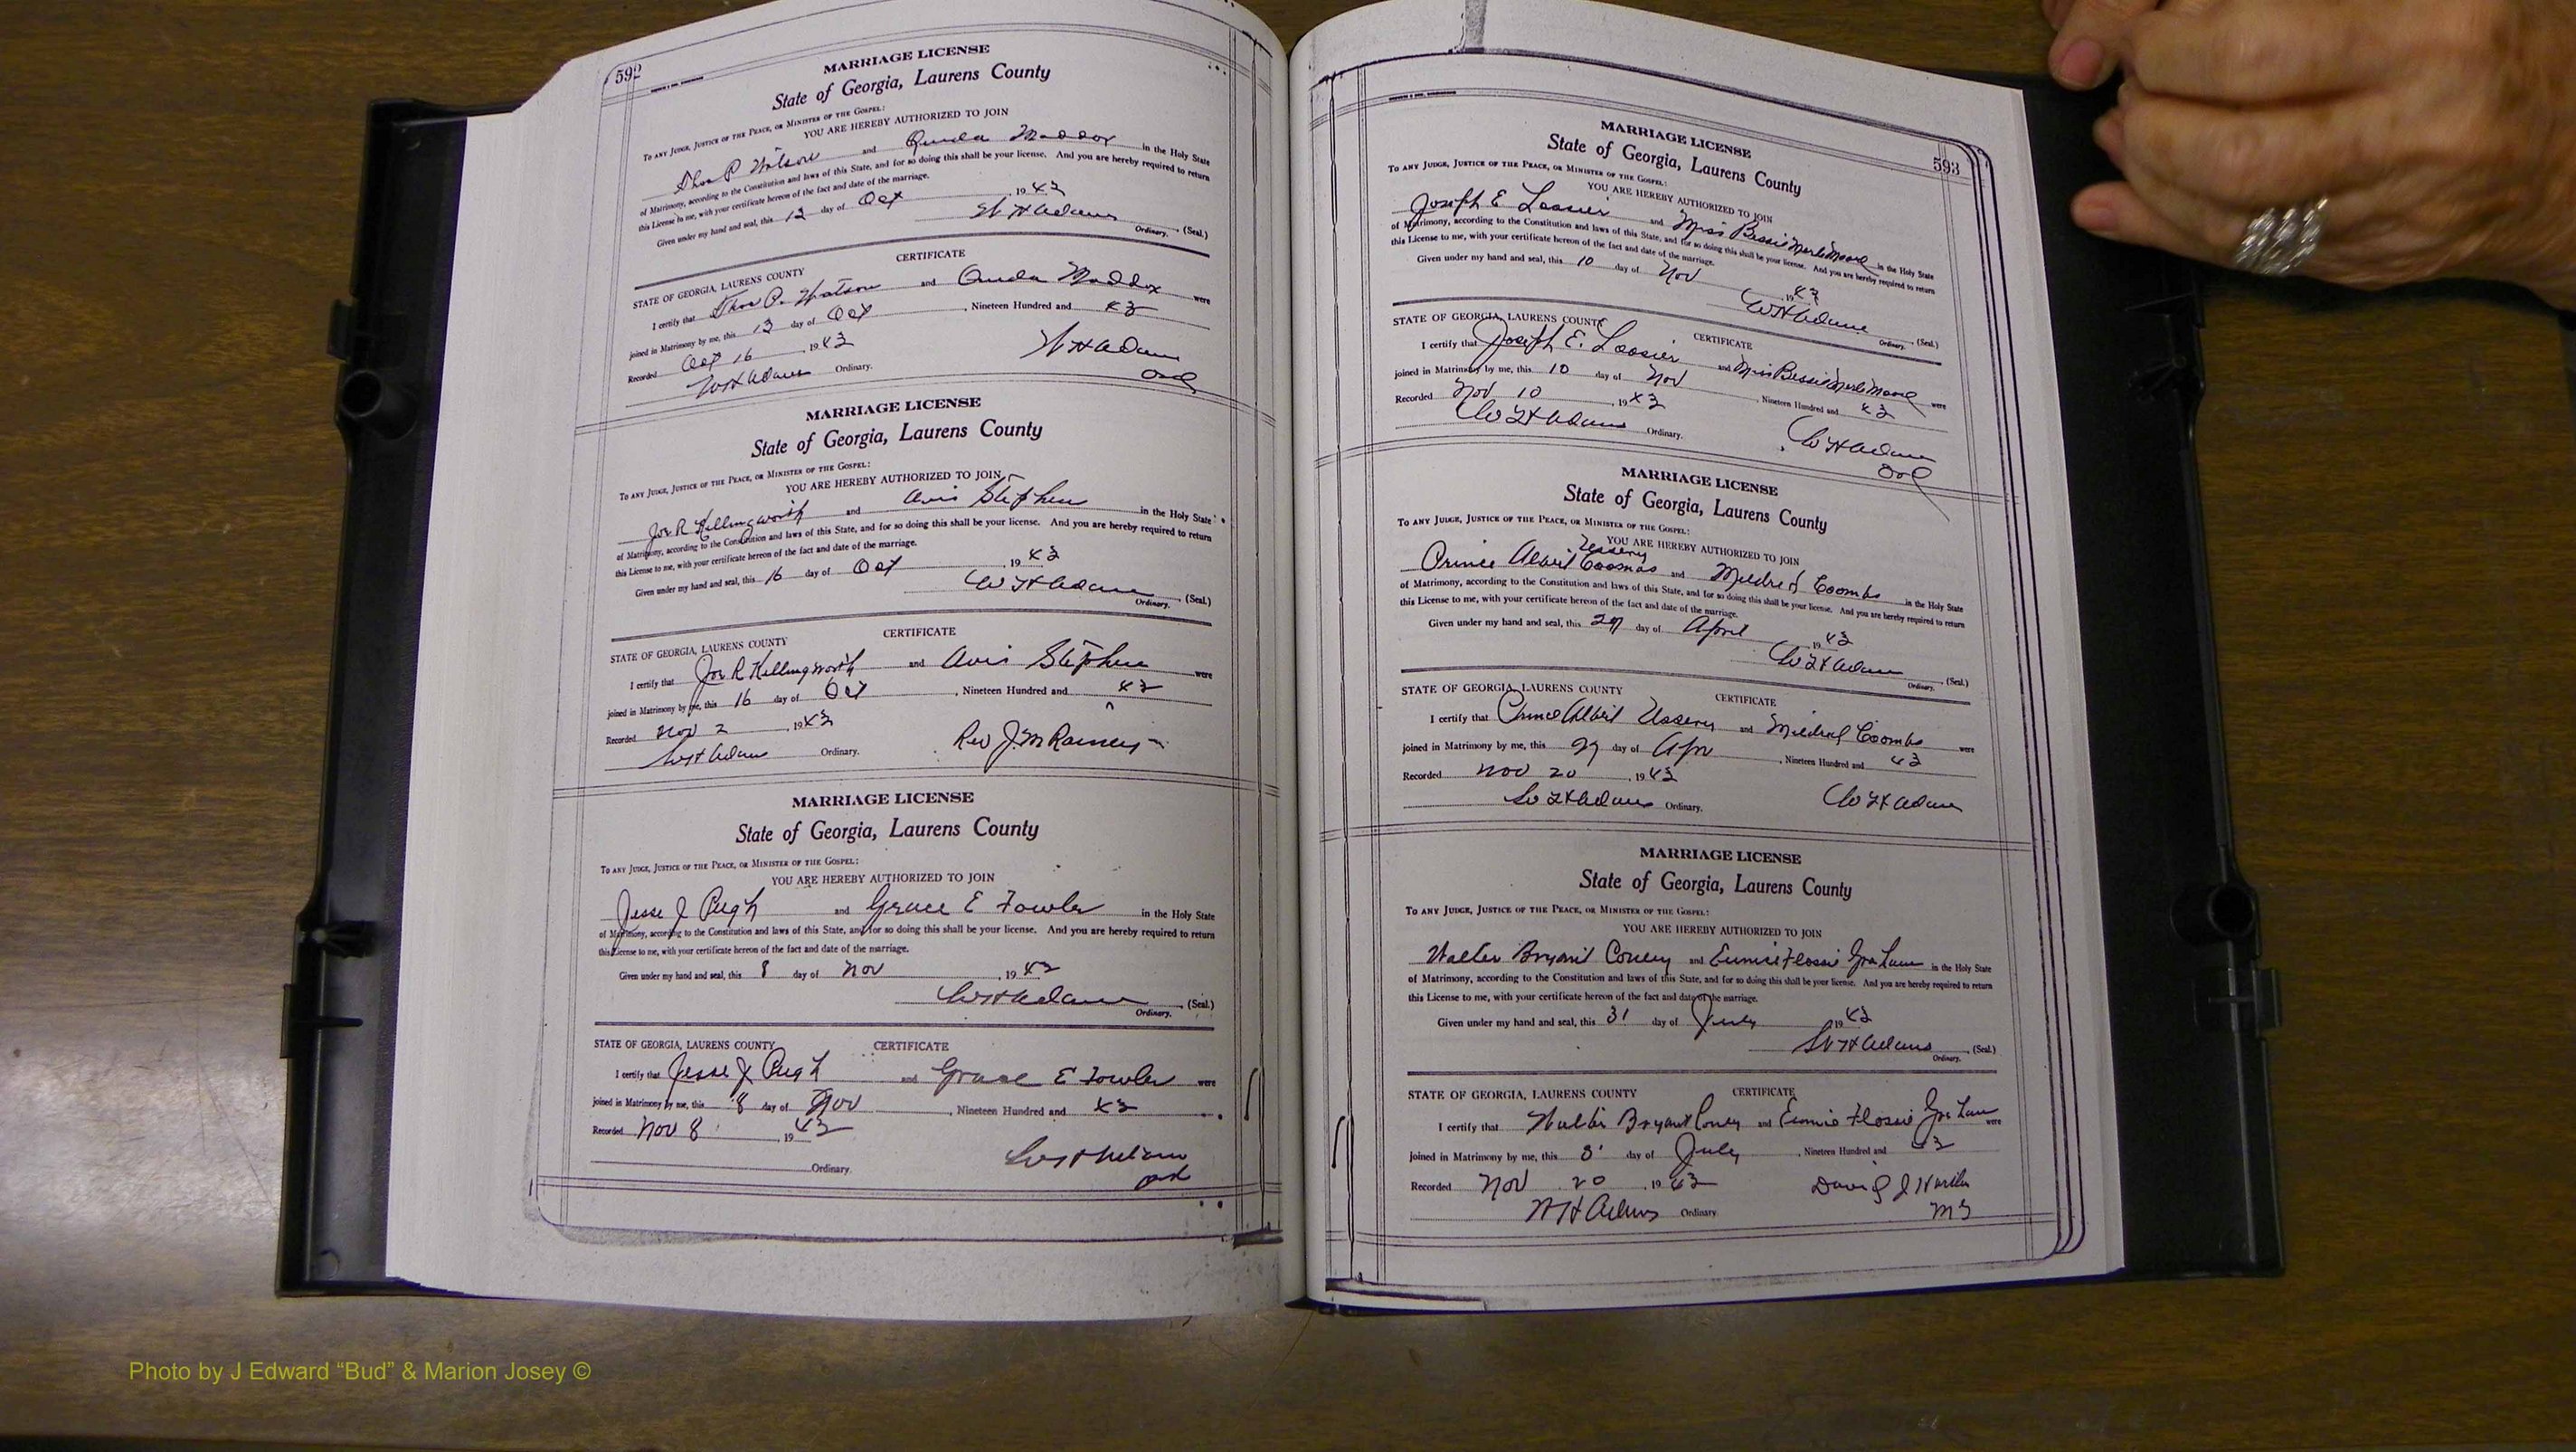 592
MARRIAGE LICENSE
State of Georgia, Laurens County
To any Judge, Justice of the Peace, or Minister of the Gospel:
YOU ARE HEREBY AUTHORIZED TO JOIN
Thos P Watson and Maddox in the Holy State
of Matrimony, according to the Constitution and laws of this State, and for so doing this shall be your license. And you are hereby required to return
this License to me, with your certificate hereon of the fact and date of the marriage.
Given under my hand and seal, this day of Oct, 1943
W H Adams (Seal.)
Ordinary.
CERTIFICATE
STATE OF GEORGIA, LAURENS COUNTY
I certify that Thos P. Watson and Maddox were
joined in Matrimony by me, this 13 day of Oct, Nineteen Hundred and 43
Recorded Oct 16, 1943
W H Adams
W H Adams Ordinary.
Ord
MARRIAGE LICENSE
State of Georgia, Laurens County
To any Judge, Justice of the Peace, or Minister of the Gospel:
YOU ARE HEREBY AUTHORIZED TO JOIN
Joe R Killingsworth and Avis Stephen in the Holy State
of Matrimony, according to the Constitution and laws of this State, and for so doing this shall be your license. And you are hereby required to return
this License to me, with your certificate hereon of the fact and date of the marriage.
Given under my hand and seal, this 16 day of Oct, 1943
W H Adams (Seal.)
Ordinary.
CERTIFICATE
STATE OF GEORGIA, LAURENS COUNTY
I certify that Joe R Killingsworth and Avis Stephen were
joined in Matrimony by me, this 16 day of Oct, Nineteen Hundred and 43
Recorded Nov 2, 1943
W H Adams Ordinary. Rev J M
MARRIAGE LICENSE
State of Georgia, Laurens County
To any Judge, Justice of the Peace, or Minister of the Gospel:
YOU ARE HEREBY AUTHORIZED TO JOIN
Jesse J Pugh and Grace E Fowler in the Holy State
of Matrimony, according to the Constitution and laws of this State, and for so doing this shall be your license. And you are hereby required to return
this License to me, with your certificate hereon of the fact and date of the marriage.
Given under my hand and seal, this 8 day of Nov, 1943
W H Adams (Seal.)
Ordinary.
STATE OF GEORGIA, LAURENS COUNTY CERTIFICATE
I certify that Jesse J Pugh and Grace E Fowler were
joined in Matrimony by me, this 8 day of Nov, Nineteen Hundred and 43
Recorded Nov 8, 1943
W H Adams
Ordinary. Ord
593
MARRIAGE LICENSE
State of Georgia, Laurens County
To any Judge, Justice of the Peace, or Minister of the Gospel:
YOU ARE HEREBY AUTHORIZED TO JOIN
Joseph E and Miss Bessie Merle Moore in the Holy State
of Matrimony, according to the Constitution and laws of this State, and for so doing this shall be your license. And you are hereby required to return
this License to me, with your certificate hereon of the fact and date of the marriage.
Given under my hand and seal, this 10 day of Nov, 1943
W H Adams (Seal.)
Ordinary.
STATE OF GEORGIA, LAURENS COUNTY CERTIFICATE
I certify that Joseph E. and Miss Bessie Merle Moore were
joined in Matrimony by me, this 10 day of Nov, Nineteen Hundred and 43
Recorded Nov 10, 1943
W H Adams Ordinary. W H Adams
Ord
MARRIAGE LICENSE
State of Georgia, Laurens County
To any Judge, Justice of the Peace, or Minister of the Gospel:
YOU ARE HEREBY AUTHORIZED TO JOIN
Ussery
Prince Albert Coombs and Mildred Coombs in the Holy State
of Matrimony, according to the Constitution and laws of this State, and for so doing this shall be your license. And you are hereby required to return
this License to me, with your certificate hereon of the fact and date of the marriage.
Given under my hand and seal, this 29 day of April, 1943
W H Adams (Seal.)
Ordinary.
STATE OF GEORGIA, LAURENS COUNTY CERTIFICATE
I certify that Prince Albert Ussery and Mildred Coombs were
joined in Matrimony by me, this 29 day of Apr, Nineteen Hundred and 43
Recorded Nov 20, 1943
W H Adams Ordinary. W H Adams
MARRIAGE LICENSE
State of Georgia, Laurens County
To any Judge, Justice of the Peace, or Minister of the Gospel:
YOU ARE HEREBY AUTHORIZED TO JOIN
Walter Bryant Coney and Eunice Flossie Graham in the Holy State
of Matrimony, according to the Constitution and laws of this State, and for so doing this shall be your license. And you are hereby required to return
this License to me, with your certificate hereon of the fact and date of the marriage.
Given under my hand and seal, this 31 day of July 1943
W H Adams (Seal.)
Ordinary.
STATE OF GEORGIA, LAURENS COUNTY CERTIFICATE
I certify that Walter Bryant Coney and Eunice Flossie Graham were
joined in Matrimony by me, this day of July, Nineteen Hundred and 43
Recorded Nov 20, 1943 David J
W H Adams Ordinary
Photo by J Edward “Bud” & Marion Josey ©